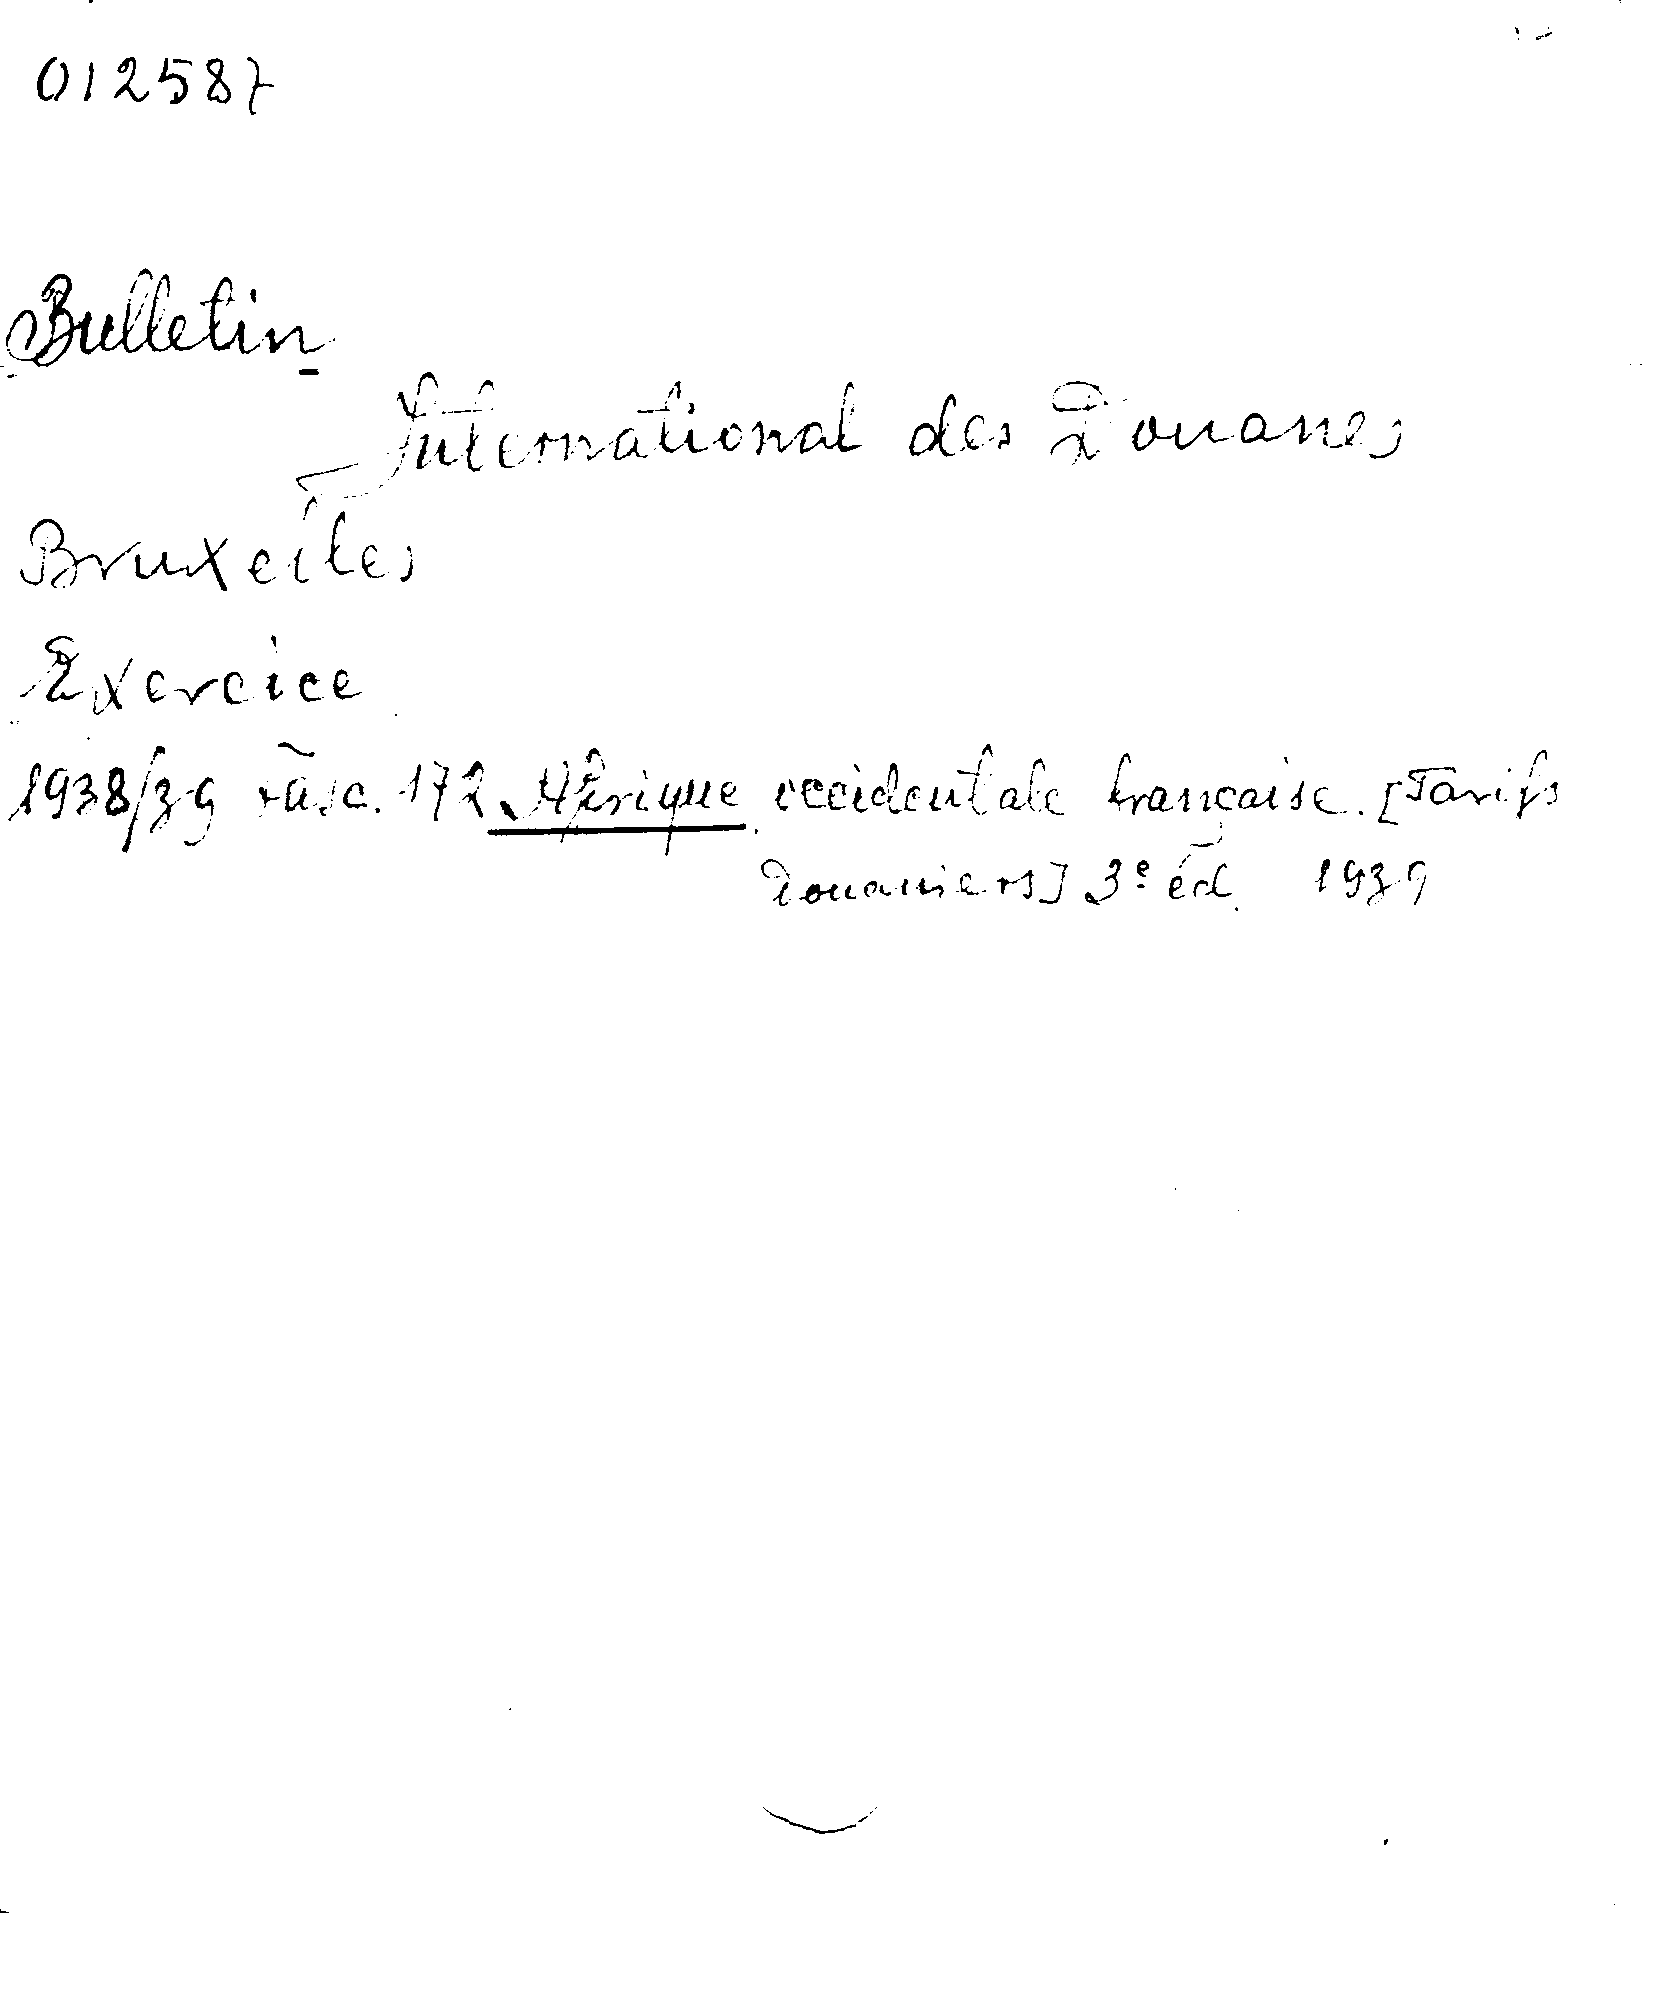 012587
Bulletin
International des Douanes
Bruxelles
Exercice
1938/39 fasc. 172 Afrique occidentale française. [Tarifs
Douaniers] 3e éd. 1939